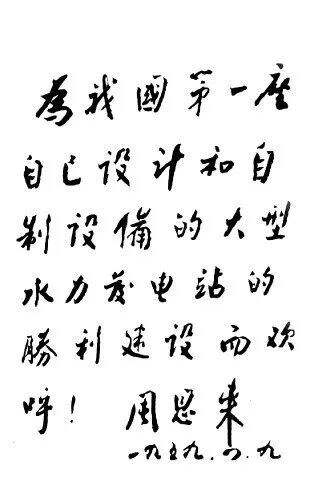 為我國第一座
自己设计和自
制設備的大型
水力发电站的
勝利建設而欢
呼! 周恩来
一九五九.四.九